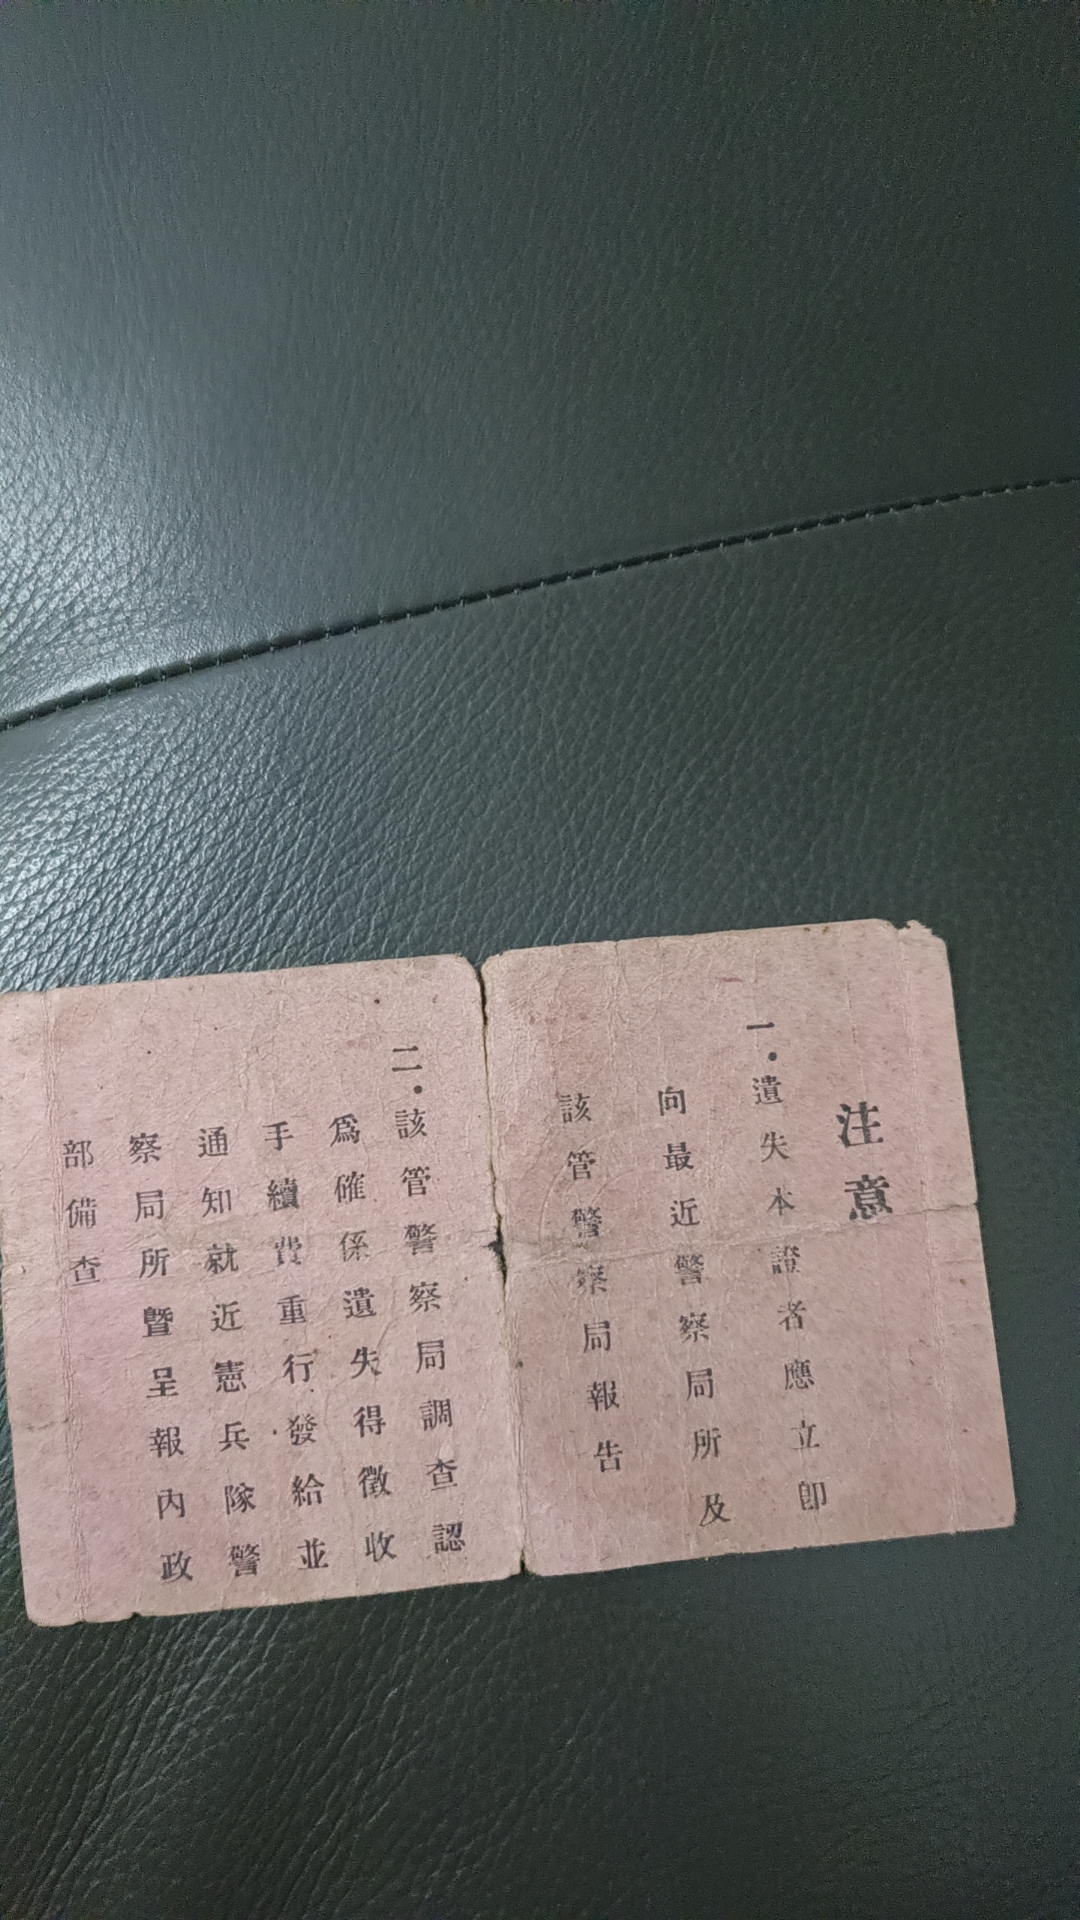 注意
一．遺失本證者應立卽
向最近警察局所及
該管警察局報告
二．該管警察局調查認
爲確係遺失得徵收
手續費重行發給並
通知就近憲兵隊警
察局所暨呈報內政
部備查